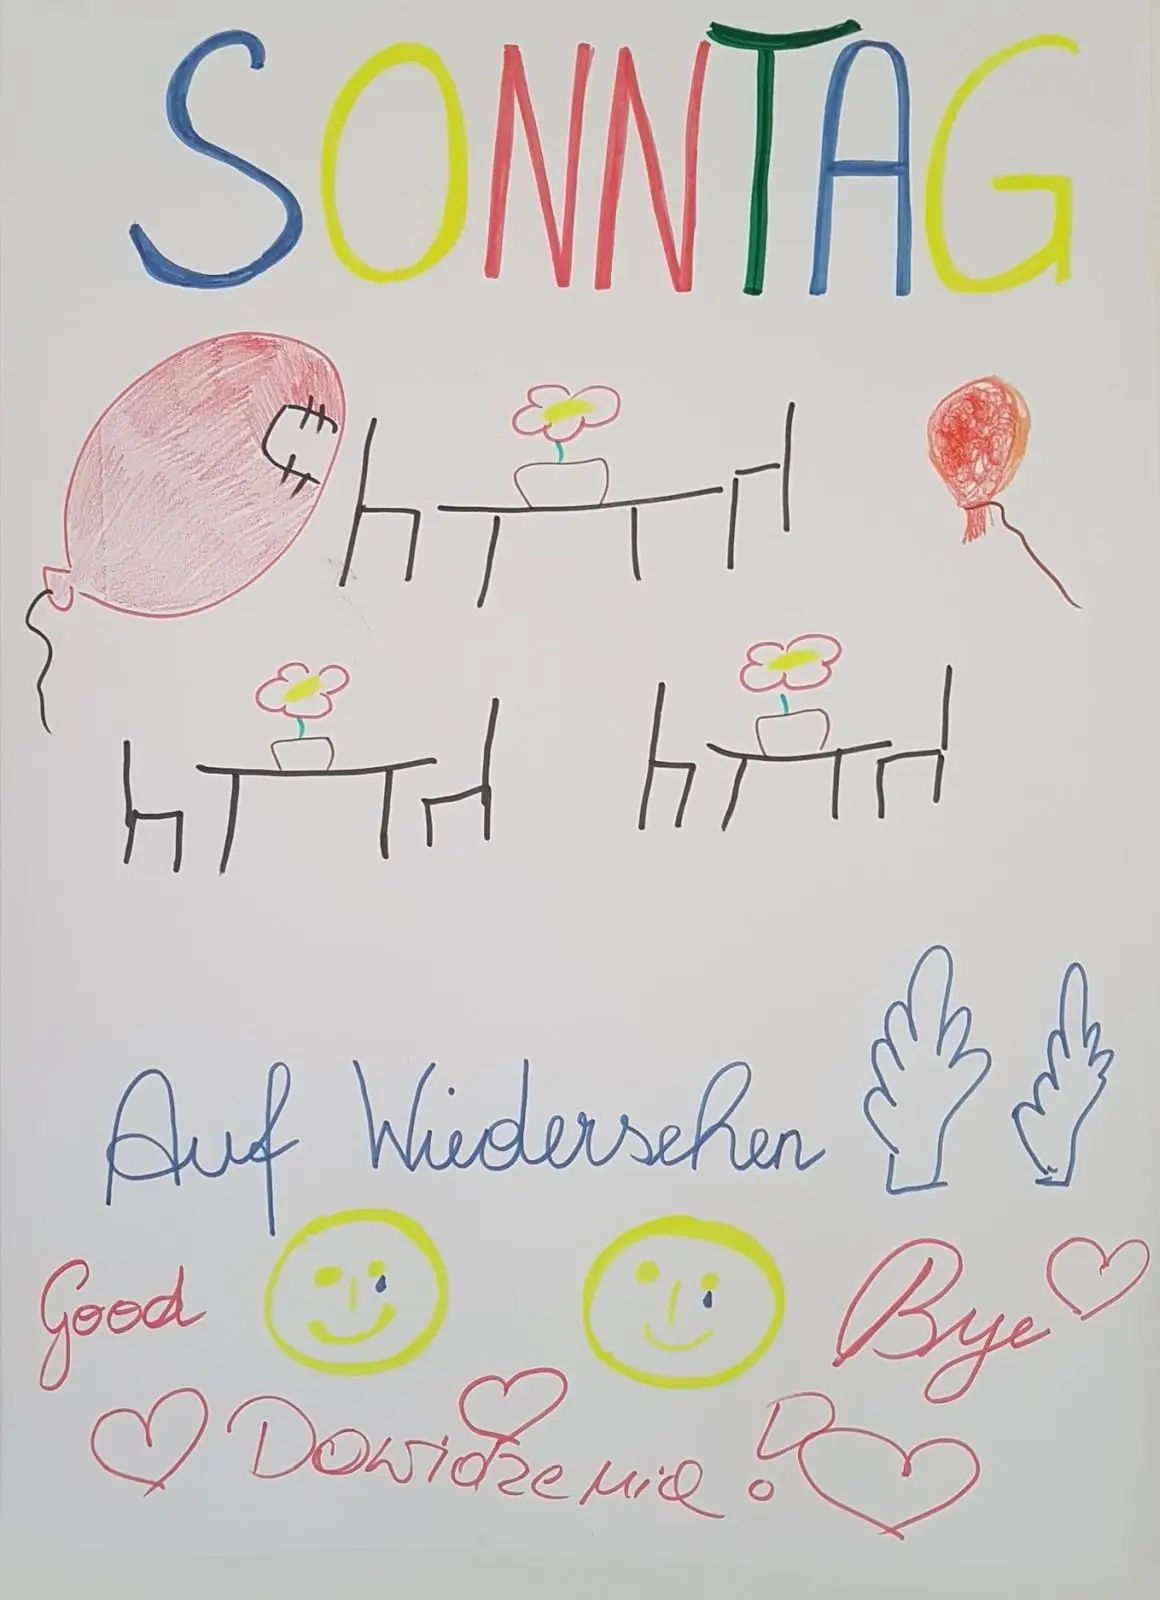 SONNTAG
Auf Wiedersehen
Good Bye
Dowidzenia!